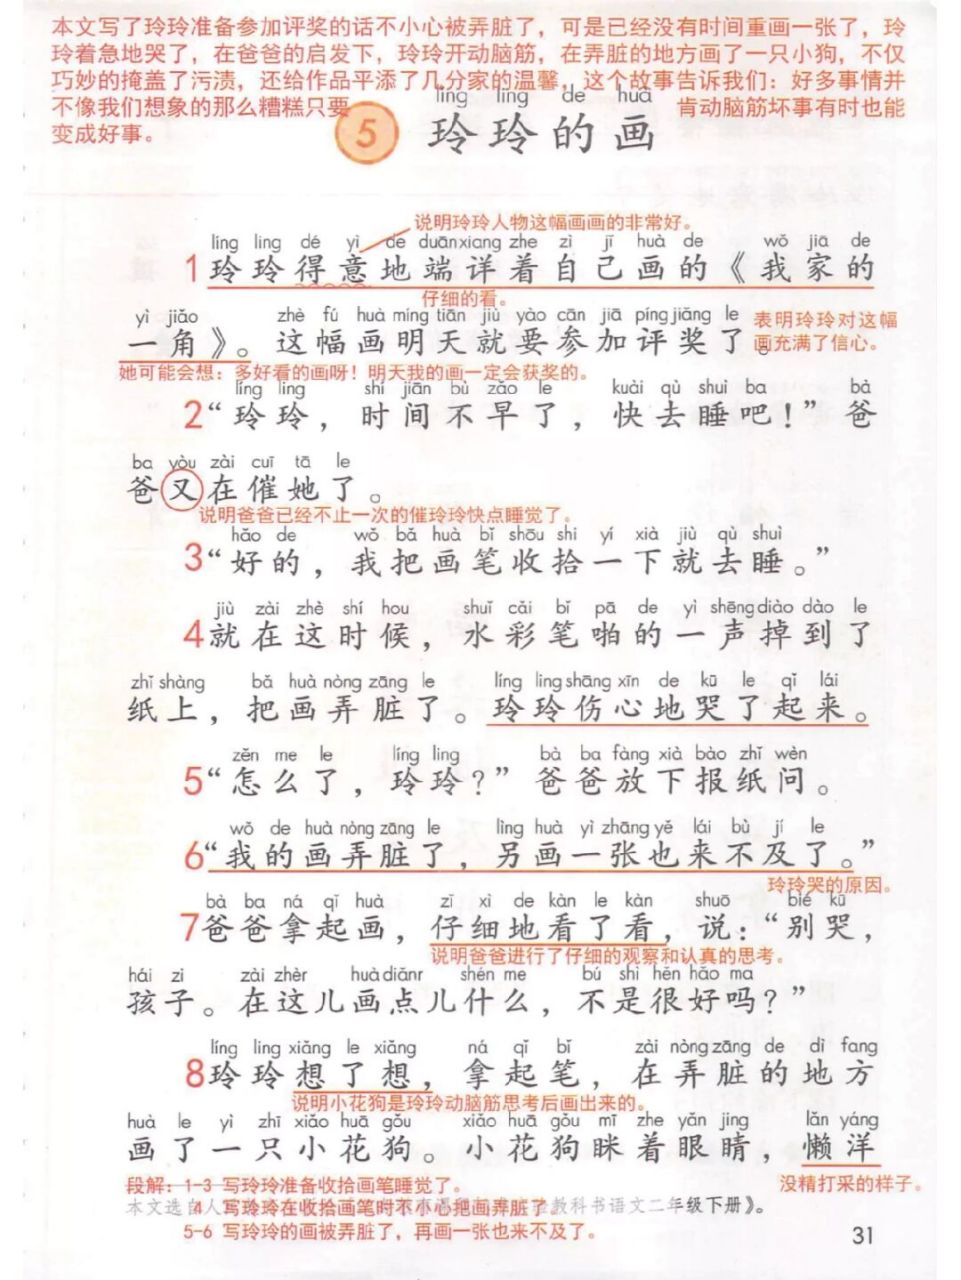 本文写了玲玲准备参加评奖的话不小心被弄脏了，可是已经没有时间重画一张了，玲
玲着急地哭了，在爸爸的启发下，玲玲开动脑筋，在弄脏的地方画了一只小狗，不仅
巧妙的掩盖了污渍，还给作品平添了几分家的温馨，这个故事告诉我们：好多事情并
不像我们想象的那么糟糕只要肯动脑筋坏事有时也能
变成好事。
líng ling de huà
5 玲玲的画
说明玲玲人物这幅画画的非常好。
líng ling dé yì de duān xiang zhe zì jǐ huà de wǒ jiā de
1玲玲得意地端详着自己画的《我家的
仔细的看。
yì jiǎo zhè fú huà míng tiān jiù yào cān jiā píng jiǎng le
一角》。这幅画明天就要参加评奖了。
表明玲玲对这幅
画充满了信心。
她可能会想：多好看的画呀！明天我的画一定会获奖的。
líng ling shí jiān bù zǎo le kuài qù shuì ba bà
2“玲玲，时间不早了，快去睡吧！”爸
ba yòu zài cuī tā le
爸又在催她了。
说明爸爸已经不止一次的催玲玲快点睡觉了。
hǎo de wǒ bǎ huà bǐ shōu shi yí xià jiù qù shuì
3“好的，我把画笔收拾一下就去睡。”
jiù zài zhè shí hou shuǐ cǎi bǐ pā de yì shēng diào dào le
4就在这时候，水彩笔啪的一声掉到了
zhǐ shàng bǎ huà nòng zāng le líng ling shāng xīn de kū le qǐ lái
纸上，把画弄脏了。玲玲伤心地哭了起来。
zěn me le líng ling bà ba fàng xià bào zhǐ wèn
5“怎么了，玲玲？”爸爸放下报纸问。
wǒ de huà nòng zāng le lìng huà yì zhāng yě lái bù jí le
6“我的画弄脏了，另画一张也来不及了。”
玲玲哭的原因。
bà ba ná qǐ huà zǐ xì de kàn le kàn shuō bié kū
7爸爸拿起画，仔细地看了看，说：“别哭，
说明爸爸进行了仔细的观察和认真的思考。
hái zi zài zhèr huà diǎnr shén me bú shì hěn hǎo ma
孩子。在这儿画点儿什么，不是很好吗？”
líng ling xiǎng le xiǎng ná qǐ bǐ zài nòng zāng de dì fang
8玲玲想了想，拿起笔，在弄脏的地方
说明小花狗是玲玲动脑筋思考后画出来的。
huà le yì zhī xiǎo huā gǒu xiǎo huā gǒu mī zhe yǎn jing lǎn yáng
画了一只小花狗。小花狗眯着眼睛，懒洋
没精打采的样子。
段解：1-3 写玲玲准备收拾画笔睡觉了。
4 写玲玲在收拾画笔时不小心把画弄脏了
本文选自人教科书语文二年级下册》。
5-6 写玲玲的画被弄脏了，再画一张也来不及了。
31